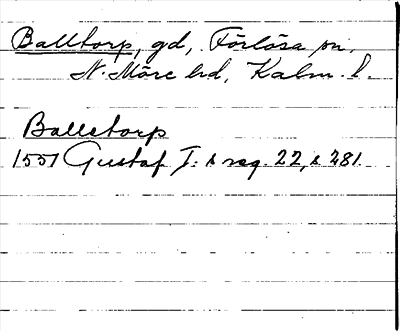 Balltorp, gd, Förlösa sn.
N. Möre hd, Kalm. l.
Balletorp
1551 Gustaf I:s reg. 22, s 281.